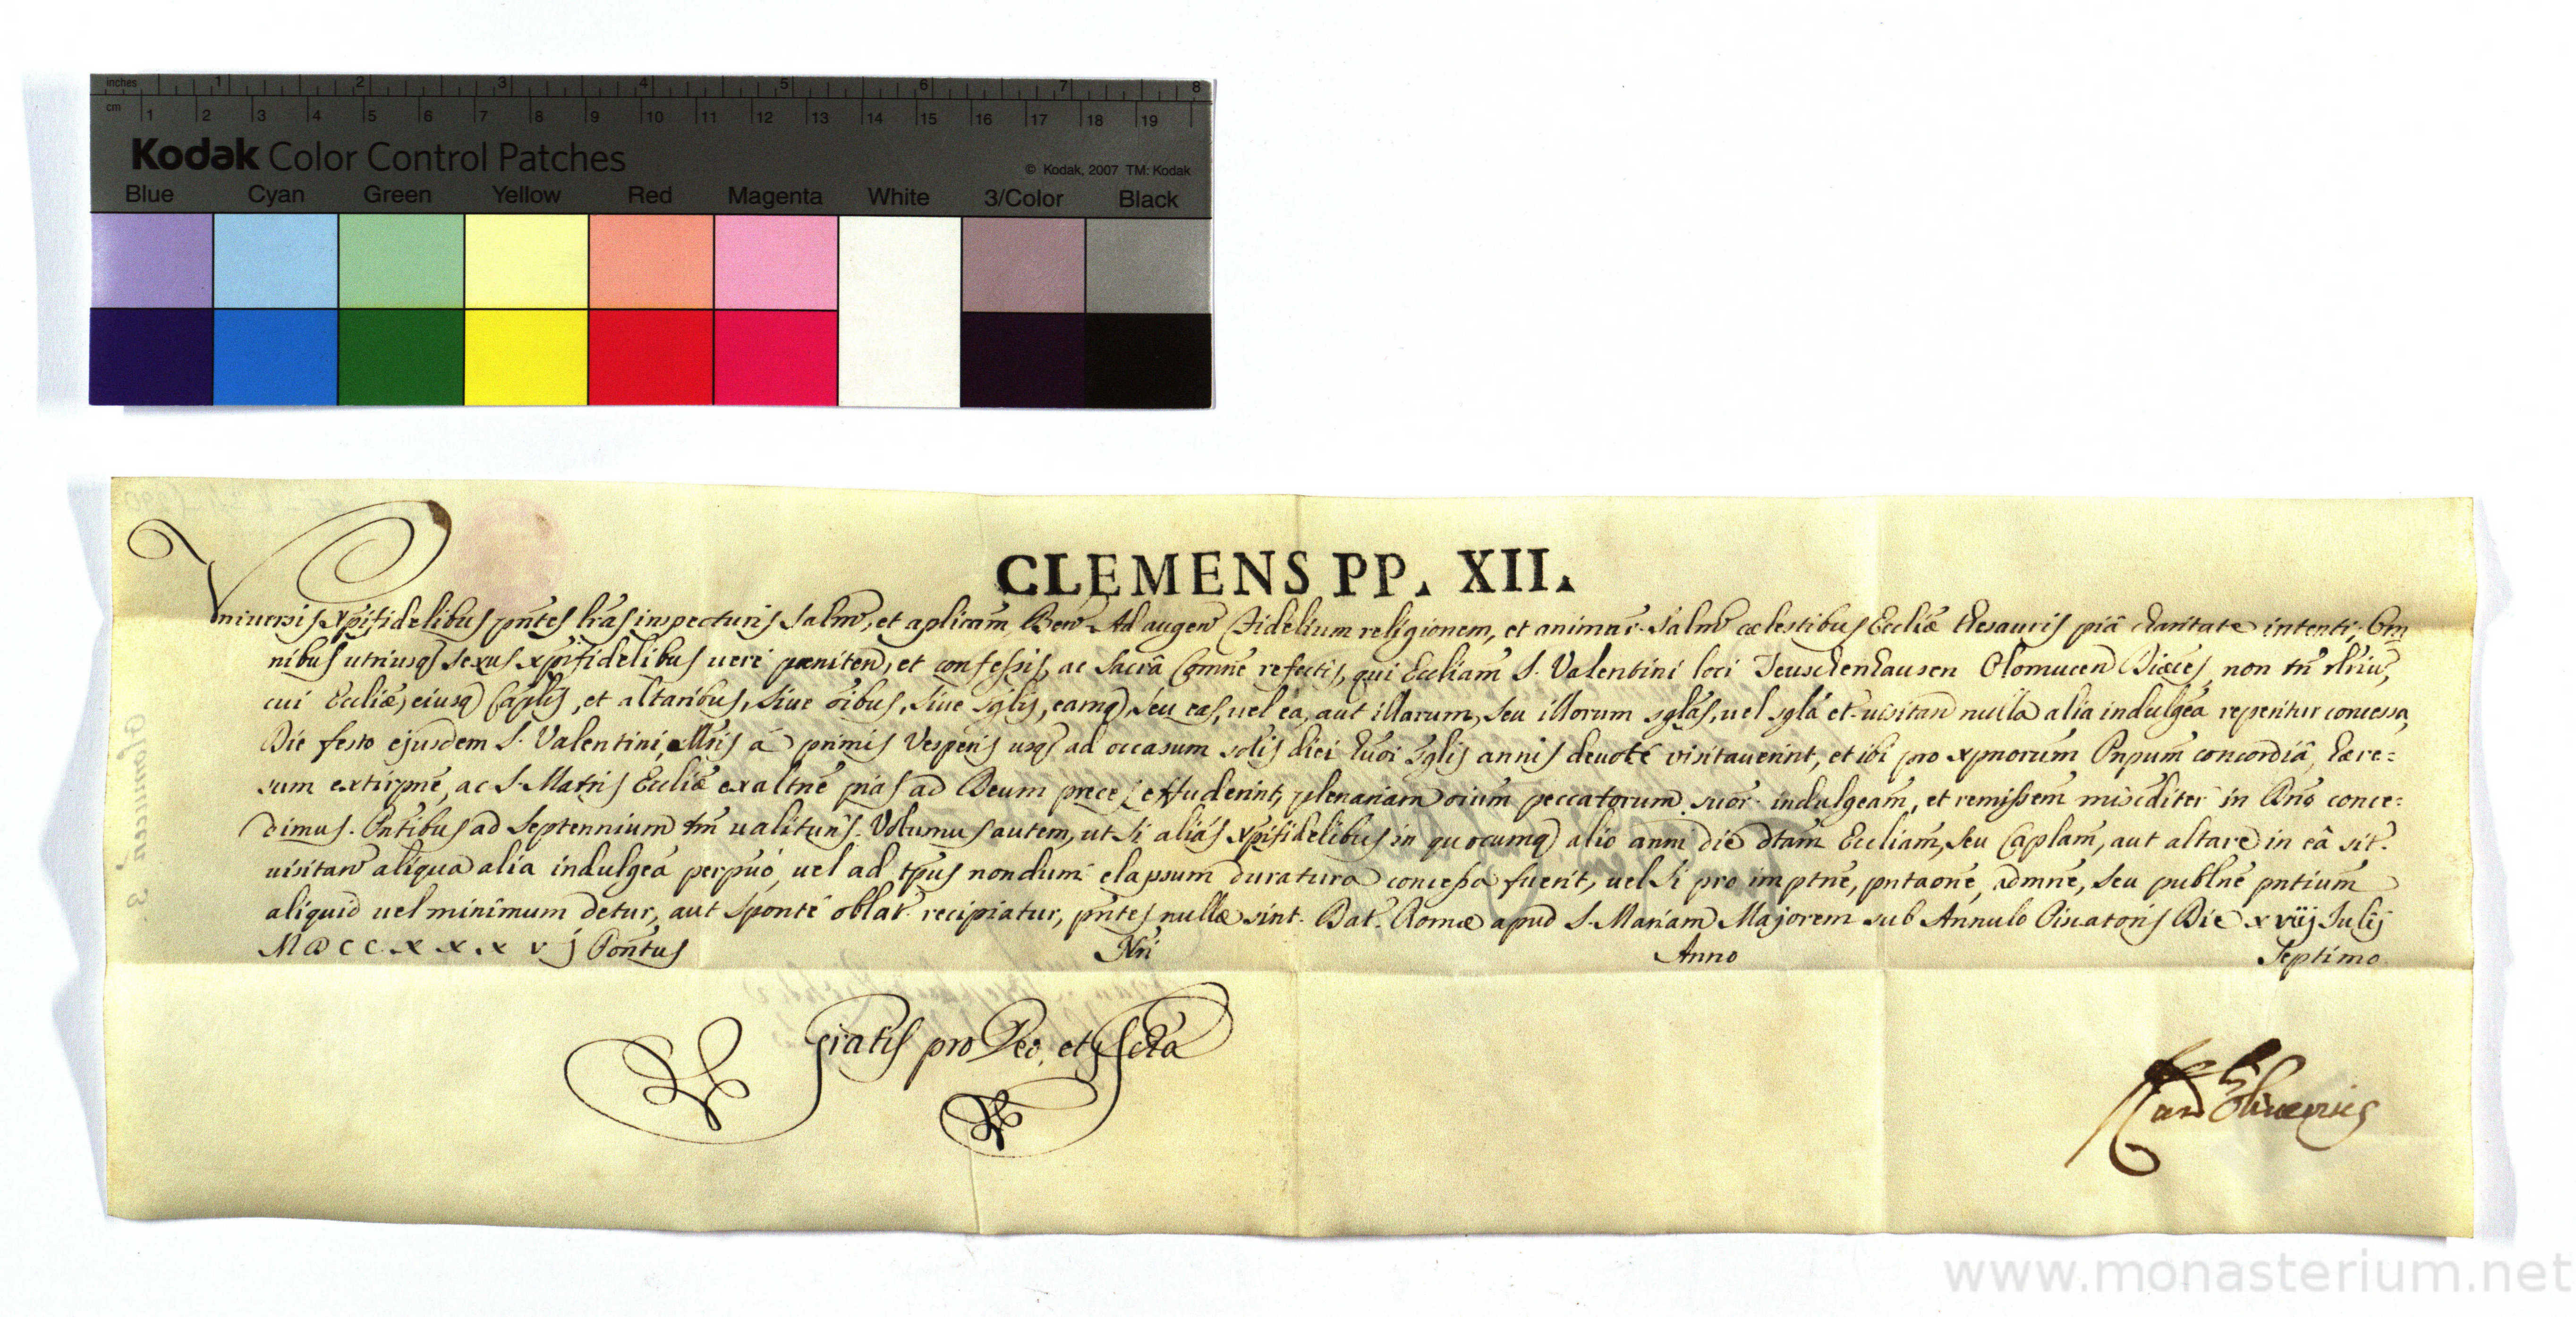 inches 1 2 3 4 5 6 7 8
cm 1 2 3 4 5 6 7 8 9 10 11 12 13 14 15 16 17 18 19
Kodak Color Control Patches
© Kodak, 2007 TM: Kodak
Blue Cyan Green Yellow Red Magenta White 3/Color Black
CLEMENS PP. XII.
Universis Xpifidelibus pntes lras inspecturis Salm, et aplicam Ben. Ad augen Fidelium religionem, et animar. Salm cælestibus Eccliæ thesauris piâ charitate intenti, Om
nibus utriusq sexus xpifidelibus uere pœniten, et confessis, ac Sacrâ Comne refectis, qui Eccliam S. Valentini loci Teuschenhausen Olomucen Diœces, non tn
cui Eccliæ, eiusq Caplis, et altaribus, siue oibus, siue sglis, eamq, seu eas, uel ea, aut illarum, seu illorum sglas, uel sgla et uisitan nulla alia indulgea reperitur concessa,
Die festo ejusdem S. Valentini, à primis Vesperis usq ad occasum solis diei huoi sglis annis deuoté visitauerint, et ibi pro xpnorum Pnpum concordiâ, hære=
sum extirpne, ac S. Matris Eccliæ exaltne pias ad Deum preces effuderint, plenariam oium peccatorum suor. indulgeam, et remissem misèditer in Dno conce=
dimus. Pntibus ad Septennium tm ualituris. Volumus autem, ut si aliás Xpifidelibus in quocumq alio anni die dtam Eccliam, seu Caplam, aut altare in eâ sit.
uisitan aliqua alia indulgea perpuó, uel ad tpus nondum elapsum duratura concessa fuerit, uel si pro imptne, pntaone, admne, seu publne pntium
aliquid uel minimum detur, aut sponté oblat. recipiatur, pntes nullæ sint. Dat. Romæ apud S. Mariam Majorem sub Annulo Piscatoris Die xviij Julij
MDCCXXXVJ Pontus Nri Anno Septimo
Gratis pro Deo, et Scta
Card Oliuerius
Olomucen 3.
www.monasterium.net